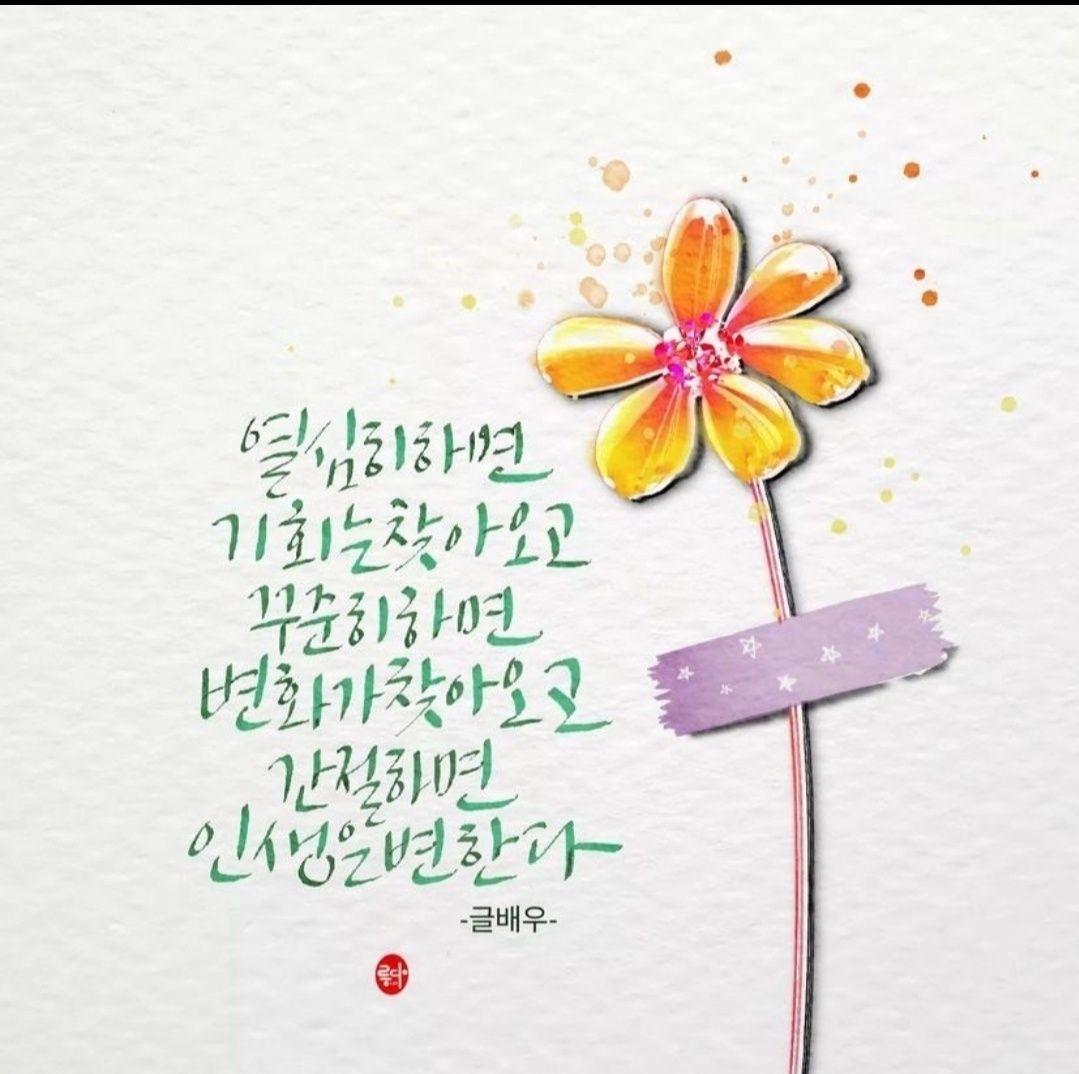 열심히하면
기회는찾아오고
꾸준히하면
변화가찾아오고
간절하면
인생은변한다
-글배우-